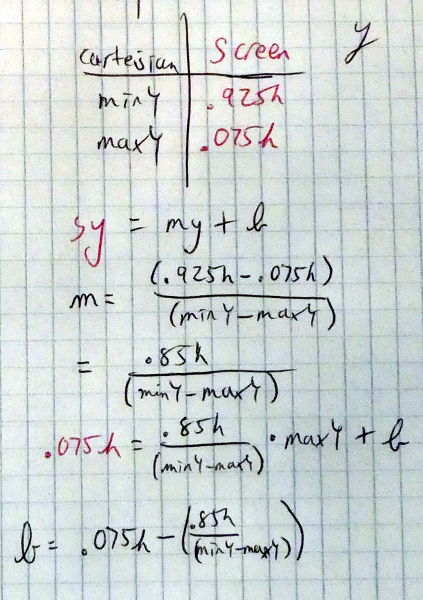 y
cartesian Screen
minY .925h
maxY .075h
sy = my + b
m = (.925h - .075h) / (minY - maxY)
= .85h / (minY - maxY)
.075h = .85h / (minY - maxY) · maxY + b
b = .075h - (.85h / (minY - maxY))